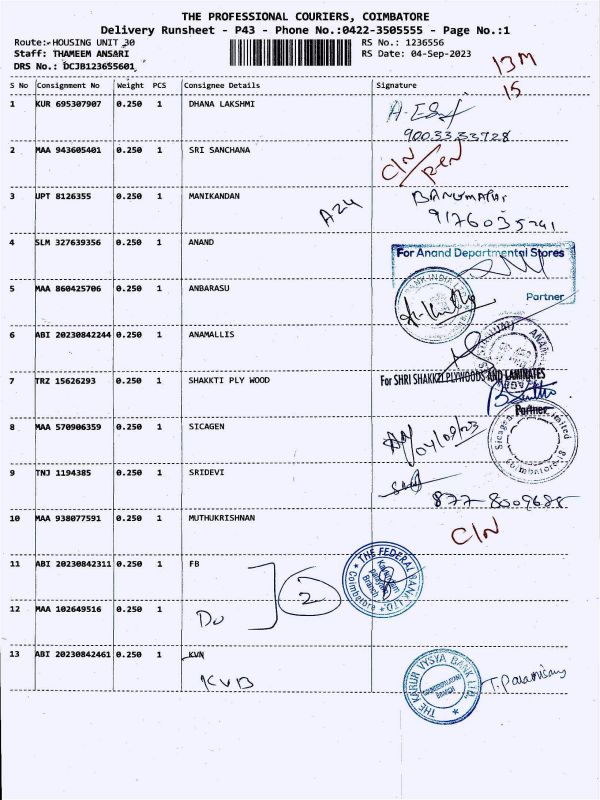 THE PROFESSIONAL COURIERS, COIMBATORE
Delivery Runsheet - P43 - Phone No.:0422-3505555 - Page No.:1
Route:-HOUSING UNIT 30 RS No.: 1236556
Staff: THAMEEM ANSARI RS Date: 04-Sep-2023
DRS No.: DCJB123655601
13M
S No Consignment No Weight PCS Consignee Details Signature
15
1 KUR 695307907 0.250 1 DHANA LAKSHMI
9003333728
2 MAA 943605401 0.250 1 SRI SANCHANA C/N
3 UPT 8126355 0.250 1 MANIKANDAN A24
9176035241
4 SLM 327639356 0.250 1 ANAND
For Anand Departmental Stores
Partner
5 MAA 860425706 0.250 1 ANBARASU
6 ABI 20230842244 0.250 1 ANAMALLIS
7 TRZ 15626293 0.250 1 SHAKKTI PLY WOOD
For SHRI SHAKKZI PLYWOODS AND LAMINATES
Partner
8 MAA 570906359 0.250 1 SICAGEN 04/09/23
Sicagen Limited
Coimbatore-18
9 TNJ 1194385 0.250 1 SRIDEVI
877-8009688
10 MAA 938077591 0.250 1 MUTHUKRISHNAN C/N
11 ABI 20230842311 0.250 1 FB
THE FEDERAL BANK LTD.
Branch
Coimbatore
2
12 MAA 102649516 0.250 1 Do
13 ABI 20230842461 0.250 1 KVN
KVB
THE KARUR VYSYA BANK LTD.
BRANCH